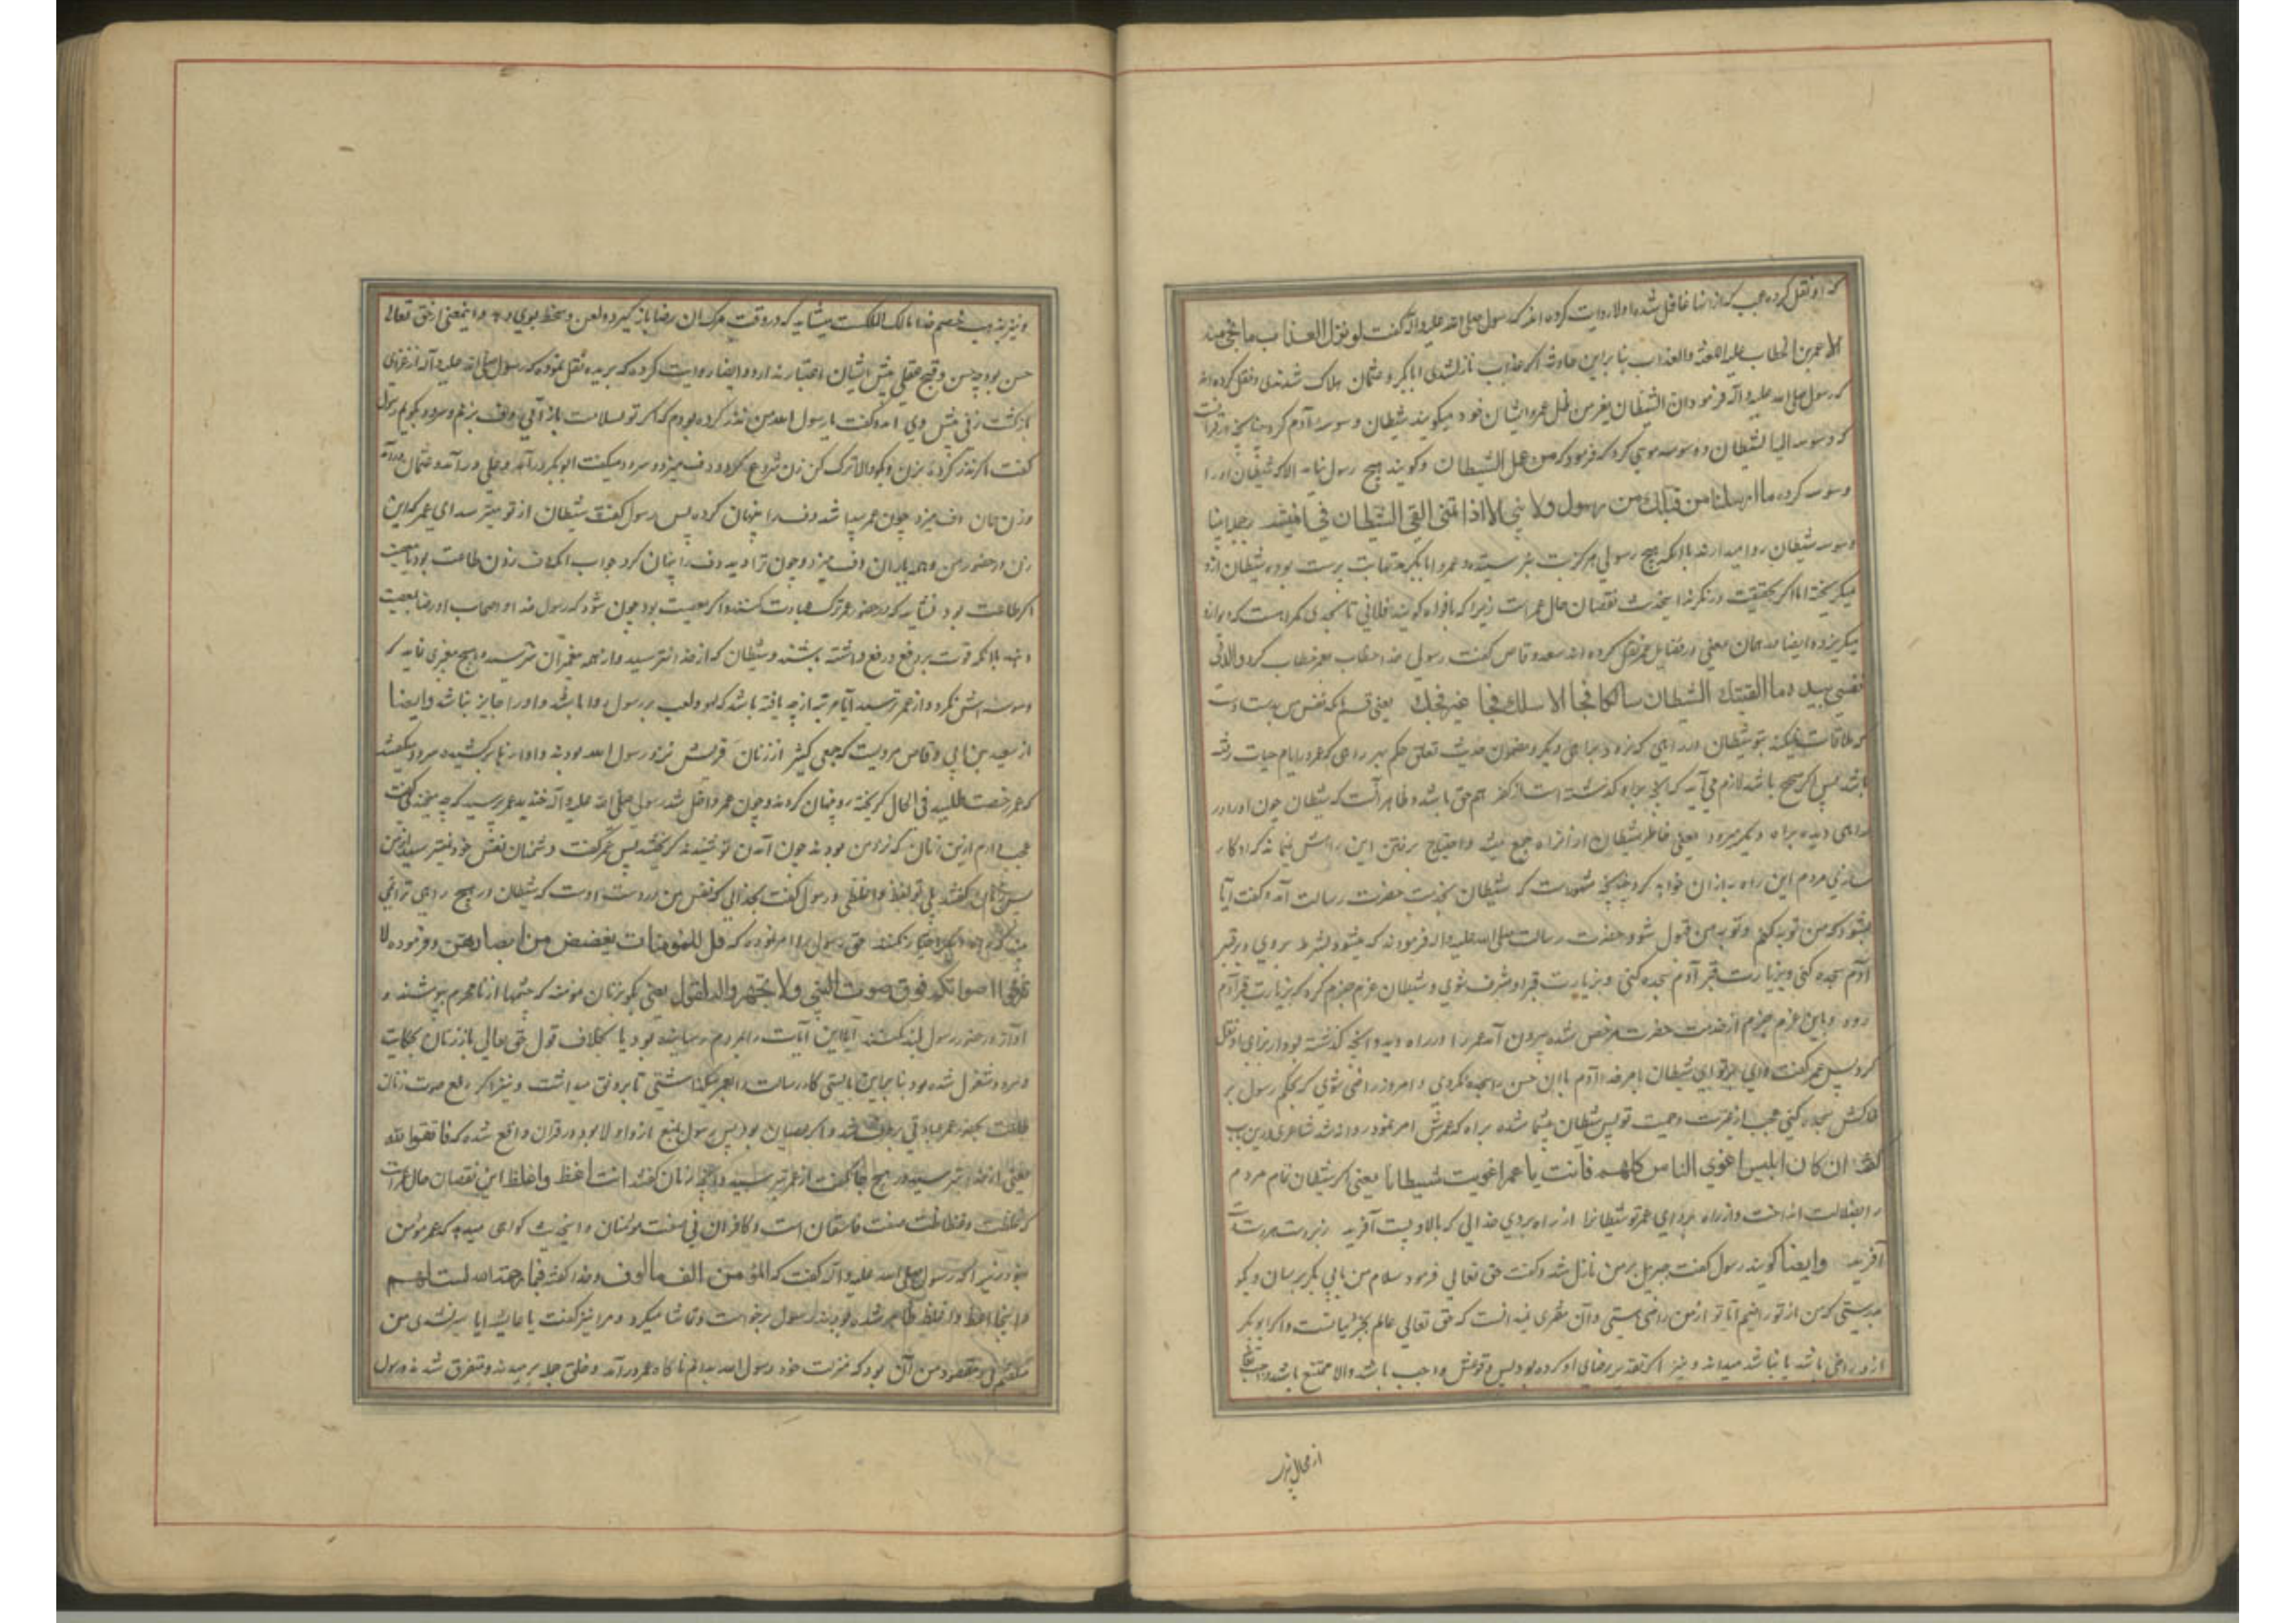 که او نقل کرده عجب که از اینها غافل شده اولا روایت کرده اند که رسول صلی الله علیه و آله گفت لو نزل العذاب ما نجی منه
الا عمر بن الخطاب علیه اللعنة والعذاب بنا براین حادثه اگر عذاب نازل شدی ابابکر و عثمان هلاک شدندی و نقل کرده اند
که رسول صلی الله علیه و آله فرمود ان الشیطان یفر من ظل عمر و ایشان خود میگویند شیطان وسوسه آدم کرد چنانچه در قرآنست
که وسوس الیه الشیطان و وسوسه موسی کرد که فرمود که من عمل الشیطان و گویند هیچ رسول نیامد الا که شیطان او را
وسوسه کرد و ما ارسلنا من قبلک من رسول ولا نبی الا اذا تمنی القی الشیطان فی امنیته بر جد انبیا
وسوسه شیطان روا میدارند با آنکه هیچ رسولی هرگز بت نپرستیده و عمر و ابابکر مدتها بت پرست بوده شیطان ازو
میگریخته اما اگر بحقیقت درنگرند این حدیث نقصان حال عمر است زیرا که بافواه گویند فلانی تا بحدی گمراهست که دیو ازو
میگریزد و ایضا مد همان معنی در فضایل عمر نقل کرده اند سعد وقاص گفت رسول خدا خطاب بعمر خطاب کرد و الذی
نفسی بیده ما القیتک الشیطان سالکا فجا الا سلک فجا غیر فجک یعنی قسم بآنکه نفس من بدست اوست
که ملاقات نمیکند بتو شیطان در راهی که نرود براهی دیگر و مضمون حدیث تعلق حکم بهر راهی که عمر در ایام حیات رفته
باشد پس اگر صحیح باشد لازم می آید که آنچه براو گذشته است از کفر هم حق باشد و ظاهر آنست که شیطان چون او را در
راهی دیده براه دیگر میرود یعنی خاطر شیطان از آن راه جمع میشد و احتیاج برفتن این راهش نماند که او کار
سازی مردم این راه به از آن خواهد کرد چنانچه مشهورست که شیطان بخدمت حضرت رسالت آمد و گفت آیا
میشود که من توبه کنم و توبه من قبول شود حضرت رسالت صلی الله علیه و آله فرمودند که میشود بشرط بروی و بر قبر
آدم سجده کنی و بزیارت قبر آدم سجده کنی و بزیارت قبر او مشرف شوی و شیطان عزم جزم کرد که بزیارت قبر آدم
رود و باین عزم جزم از خدمت حضرت مرخص شده بیرون آمد عمر را در راه دید و آنچه گذشته بود از برای او نقل
کرد پس عمر گفت وای بر تو ای شیطان بامر خدا آدم با آن حسن را سجده نکردی و امروز راضی شوی که بحکم رسول بر
خاکش سجده کنی عجب از غیرت و حمیت تو پس شیطان پشیمان شده براه که عمرش امر نمود روانه شد شاعری درین باب
گفته ان کان ابلیس اغوی الناس کلهم فانت یا عمر اغویت شیطانا یعنی اگر شیطان تمام مردم
را بضلالت انداخت و از راه برد ای عمر تو شیطانرا از راه بردی خدائی که بالا و پست آفرید زبردست هر دست
آفرید وایضا گویند رسول گفت جبریل بر من نازل شد و گفت حق تعالی فرمود سلام من بابی بکر برسان و بگو
بدرستی که من از تو راضیم آیا تو از من راضی هستی و آن مفتری ندانست که حق تعالی عالم بجزئیاتست و اگر ابوبکر
ازو راضی باشد یا نباشد میداند و نیز اگر تقدیر رضای او کرده بود پس وقوعش واجب باشد والا ممتنع باشد
از محال
و نیز بمذهب خصم خدا مالک الملکست میشاید که در وقت مرگ آن رضا باز گیرد و لعن و سخط بوی دهد و اینمعنی از حق تعالی
حسن بود چه حسن و قبح عقلی پیش ایشان اعتبار ندارد و ایضا روایت کرده که بریده نقل نموده که رسول صلی الله علیه و آله از غزای
بازگشت زنی پیش وی آمد و گفت یا رسول الله من نذر کرده بودم که اگر تو بسلامت باز آئی دف بزنم و سرود بگویم رسول
گفت اگر نذر کرده بزن و بگو والا ترک کن زن شروع کرد و دف میزد و سرود میگفت ابوبکر درآمد و علی درآمد و عثمان درآمد
و زن همان دف میزد چون عمر پیدا شد دف را پنهان کرد پس رسول گفت شیطان از تو میترسد ای عمر که این
زن در حضور من و یاران دف میزد و چون ترا دید دف را پنهان کرد جواب آنکه دف زدن طاعت بود یا معصیت
اگر طاعت بود نشاید که در حضور عمر ترک عبادت کنند و اگر معصیت بود چون شود که رسول خدا و اصحاب او رضا بمعصیت
دهند بلا آنکه قوت بر دفع و رفع داشته باشند و شیطان که از خدا نترسید و از همه پیغمبران نترسیده هیچ پیغمبری نماند که
وسوسه اش نکرد و از عمر ترسید آیا مرتبه از چه یافته باشد که لهو و لعب بر رسول روا باشد و او را جایز نباشد وایضا
از سعید بن ابی وقاص مرویست که جمعی کثیر از زنان قریش نزد رسول الله بودند و آوازها برکشیده سرود میگفتند
که عمر رخصت طلبید فی الحال گریخته پنهان کردند و چون عمر داخل شد رسول صلی الله علیه و آله خندید عمر پرسید که چه میخندی گفت
عجب دارم از این زنان که نزد من بودند چون آمدن تو شنیدند گریختند پس عمر گفت دشمنان نفس خود نمیترسید از من
پس زنان گفتند بلی تو افظ و اغلظی و رسول گفت بخدائی که نفس من در دست اوست که شیطان در هیچ راهی ترا نمی
بیند که راه دیگر اختیار نکند حق رسول را امر نموده که قل للمؤمنات یغضضن من ابصارهن و فرموده لا
ترفعوا اصواتکم فوق صوت النبی ولا تجهروا له بالقول یعنی بگو بزنان مومنه که چشمها از نامحرم بپوشند و
آواز در حضور رسول بلند نکنند آیا این آیات را بمردم رسانیده بود یا بخلاف قول حق تعالی با زنان بحکایت
و سرود مشغول شده بود بنابراین بایستی کار رسالت را بعمر میگذاشتی تا برونق میداشت و نیز اگر رفع صوت زنان
طاعت بجهة عمر عبادتی برطرف شد و اگر عصیان بود پس رسول بمنع از او اولا بود در قرآن واقع شده که فاتقوا الله
یعنی از خدا بترسید و در هیچ جا نگفت از عمر بترسید و آنچه زنان گفتند انت افظ واغلظ این نقصان حال عمر است
که غلظت و فظاظت صفت فاسقان است و کافران نی صفت مؤمنان و این حدیث گواهی میدهد که عمر مؤمن
نبود زیرا که رسول صلی الله علیه و آله گفت که المؤمن الف مألوف و خدا گفته فبما رحمة الله لنت لهم
و اینجا افظ و اغلظ ظاهر شده بودند رسول برخواست و تماشا میکرد و مرا نیز گفت یا عایشه آیا سیر نشدی من
میگفتم نی و مقصود من آن بود که منزلت خود رسول الله بدانم ناگاه عمر درآمد و خلق جمله برمیدند و متفرق شدند رسول